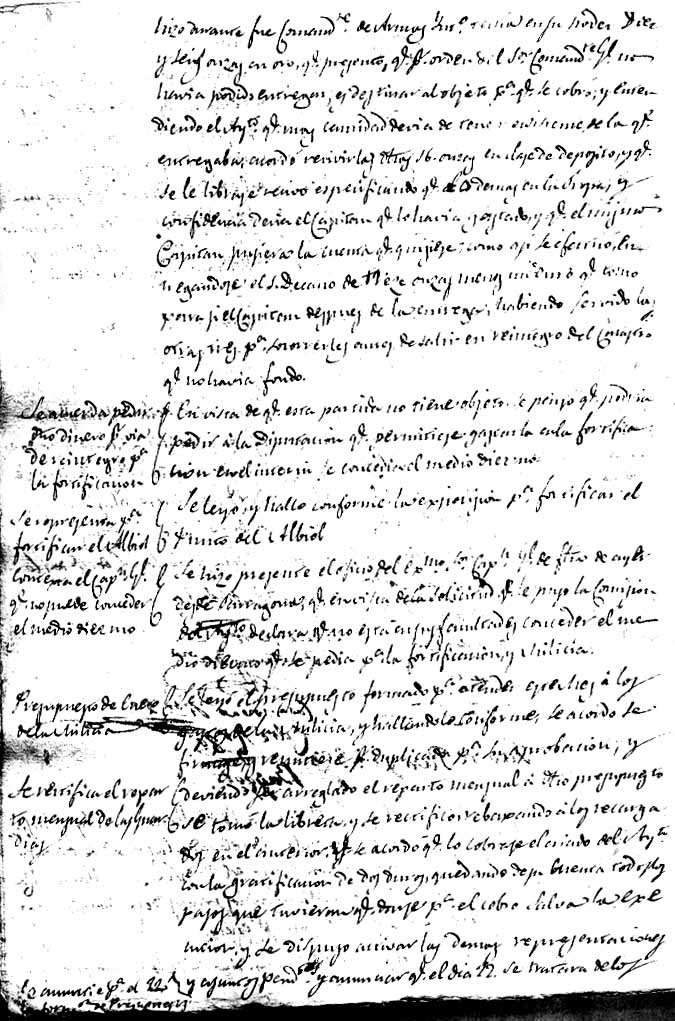 hizo durante fue Comandte de Armas tenia en su poder Diez
y seis onzas en oro, qe presento, qe pr orden del Sor Comandte Gl no
havia podido entregar, es destinar al objeto pa qe se cobro; y enten
diendo el Ayto qe mas cantidad devia de tener existente, de la qe
entregaba, acordó recivir las dhas 16 onzas en clase de deposito, y qe
se le librase recivo especificando qe lo demas en y
confidencia devia el Capitan qe lo havia gastado, y qe el mismo
Capitan pusiera la cuenta qe quisiese; como asi se efectuó, en
tregandose el S. Decano de treze onzas menos qe tomo
para si el Capitan despues de la entrega, habiendo servido las
otras tres pa socorrerles antes de salir en reintegro del
qe no havia fondo.
Se acuerda pedir
dho dinero pr via
de reintegro pa
la fortificacion
En vista de qe esta partida no tiene objeto se penso qe podria
pedir á la Diputacion qe permitiese gastarla en la fortifica
cion en el interin se concedia el medio diezmo.
Se representa pa
fortificar el Albiol
Se leyó y halló conforme la exposicion pa fortificar el
punto del Albiol
Contexta el Capn Gl
qe no puede conceder
el medio diezmo
Se hizo presente el oficio del Exmo Sor Capn Gl de fha de ayer
desde Tarragona, qe en vista de la solicitud qe le puso la Comision
del Ayto declara qe no está en sus facultades conceder el me
dio diezmo qe se pedia pa la fortificacion, y Milicia.
Presupuesto de
de la Milicia
Se leyó el presupuesto formado pa atender este mes á los
gastos de la Milicia, y hallandole conforme, se acordo se
firmase y remitiese pr duplicado pa su aprobacion; y
Se rectifica el repar
to mensual de las Guar
dias
deviendo ser arreglado el reparto mensual á dho presupuesto
se tomó la libreta y se rectificó rebaxando á los recarga
dos en el anterior, y se acordo qe lo cobrase el criado del Ayto
con la gratificacion de dos duros, quedando de su cuenta todos los
pasos que tuvieran qe darse pa el cobro salva la exe
cucion, y se dispuso activar las demas representaciones
Se anuncie pa el 22
y asuntos pendtes y anunciar qe el dia 22 se tratara de los